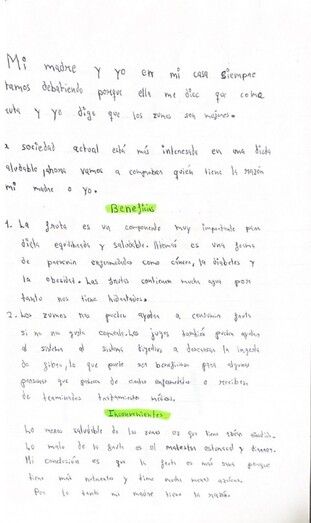 Mi madre y yo en mi casa siempre
tamos debatiendo porque ella me dice que coma
uta y yo digo que los zumos son mejores.
sociedad actual está más interesada en una dieta
aludable, ahora vamos a comprobar quién tiene la razón
mi madre o yo.
Beneficios
1. La fruta es un componente muy importante para
dieta equilibrada y saludable. Además es una forma
de prevenir enfermedades como cáncer, la diabetes y
la obesidad. Las frutas contienen mucha agua por
tanto nos tiene hidratados.
2. Los zumos nos pueden ayudar a consumir fruta
si no nos gusta comerla. Los jugos también pueden ayudar
al sistema digestivo a descansar la ingesta
de fibra, lo que puede ser beneficioso para algunas
personas que padecen de enfermedades o reciben
de terminados tratamiento
Inconvenientes
Lo menos saludable de los zumos es que tiene azúcar añadido.
Lo malo de la fruta es el malestar estomacal y
Mi conclusión es que la fruta es más sana porque
tiene más nutrientes y tiene mucha menos azúcar.
Por lo tanto mi madre tiene la razón.